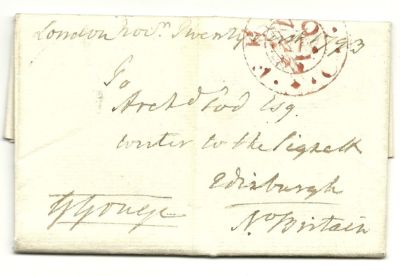 London Nov.r Twenty 1793
To
Archd Tod Esq.
writer to the Signett
Edinburgh
No. Britain